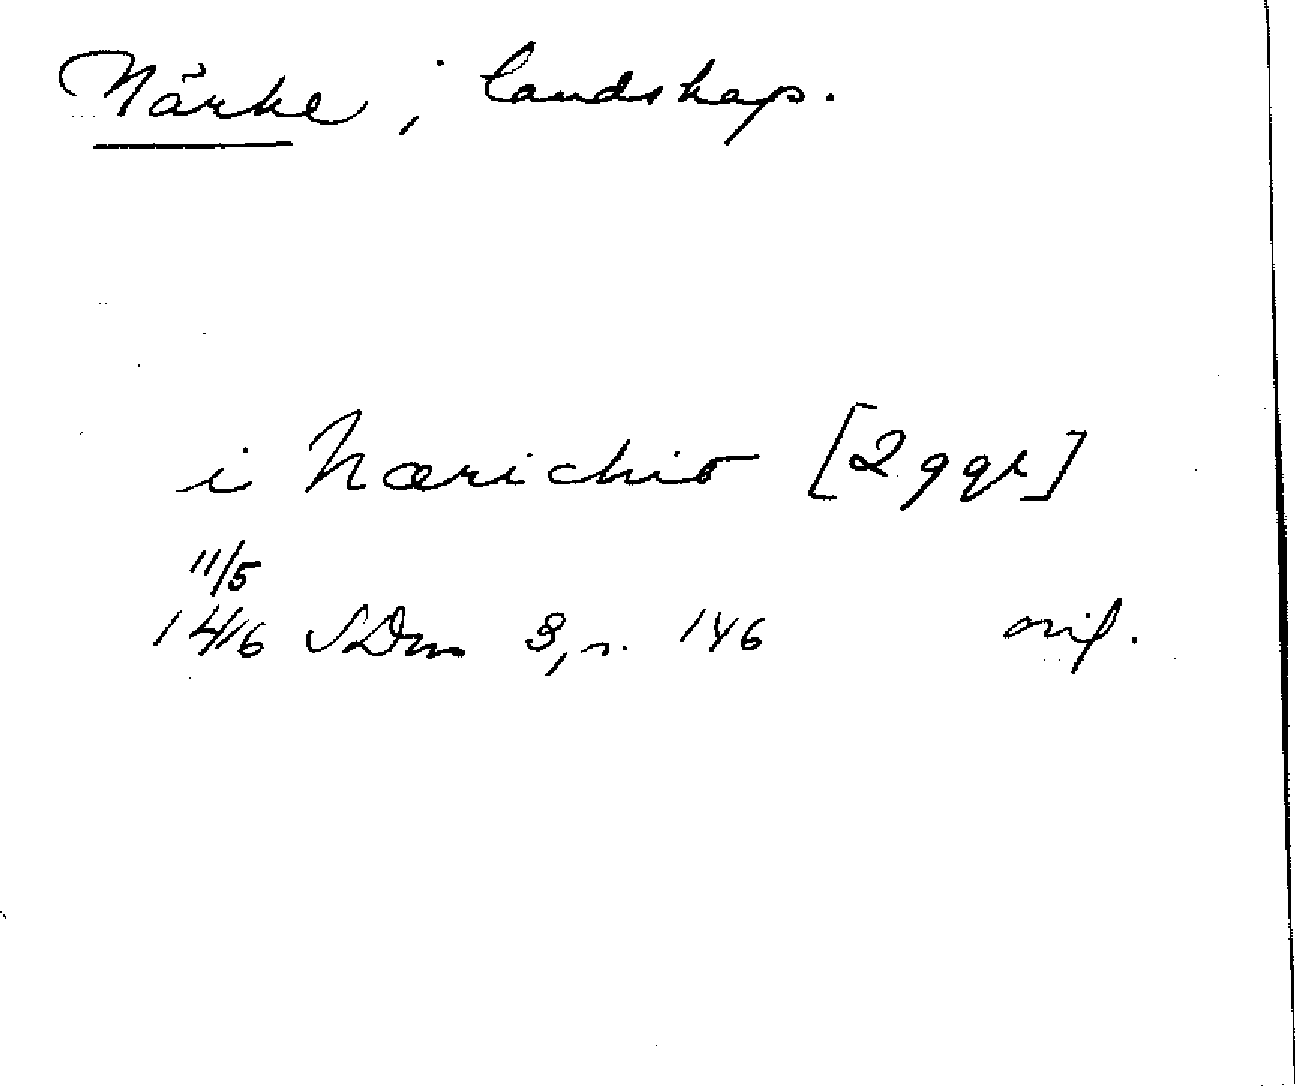 Närke, landskap.
i Nærichio [2 ggr]
11/5
1416 SDns 3, s. 146 orig.